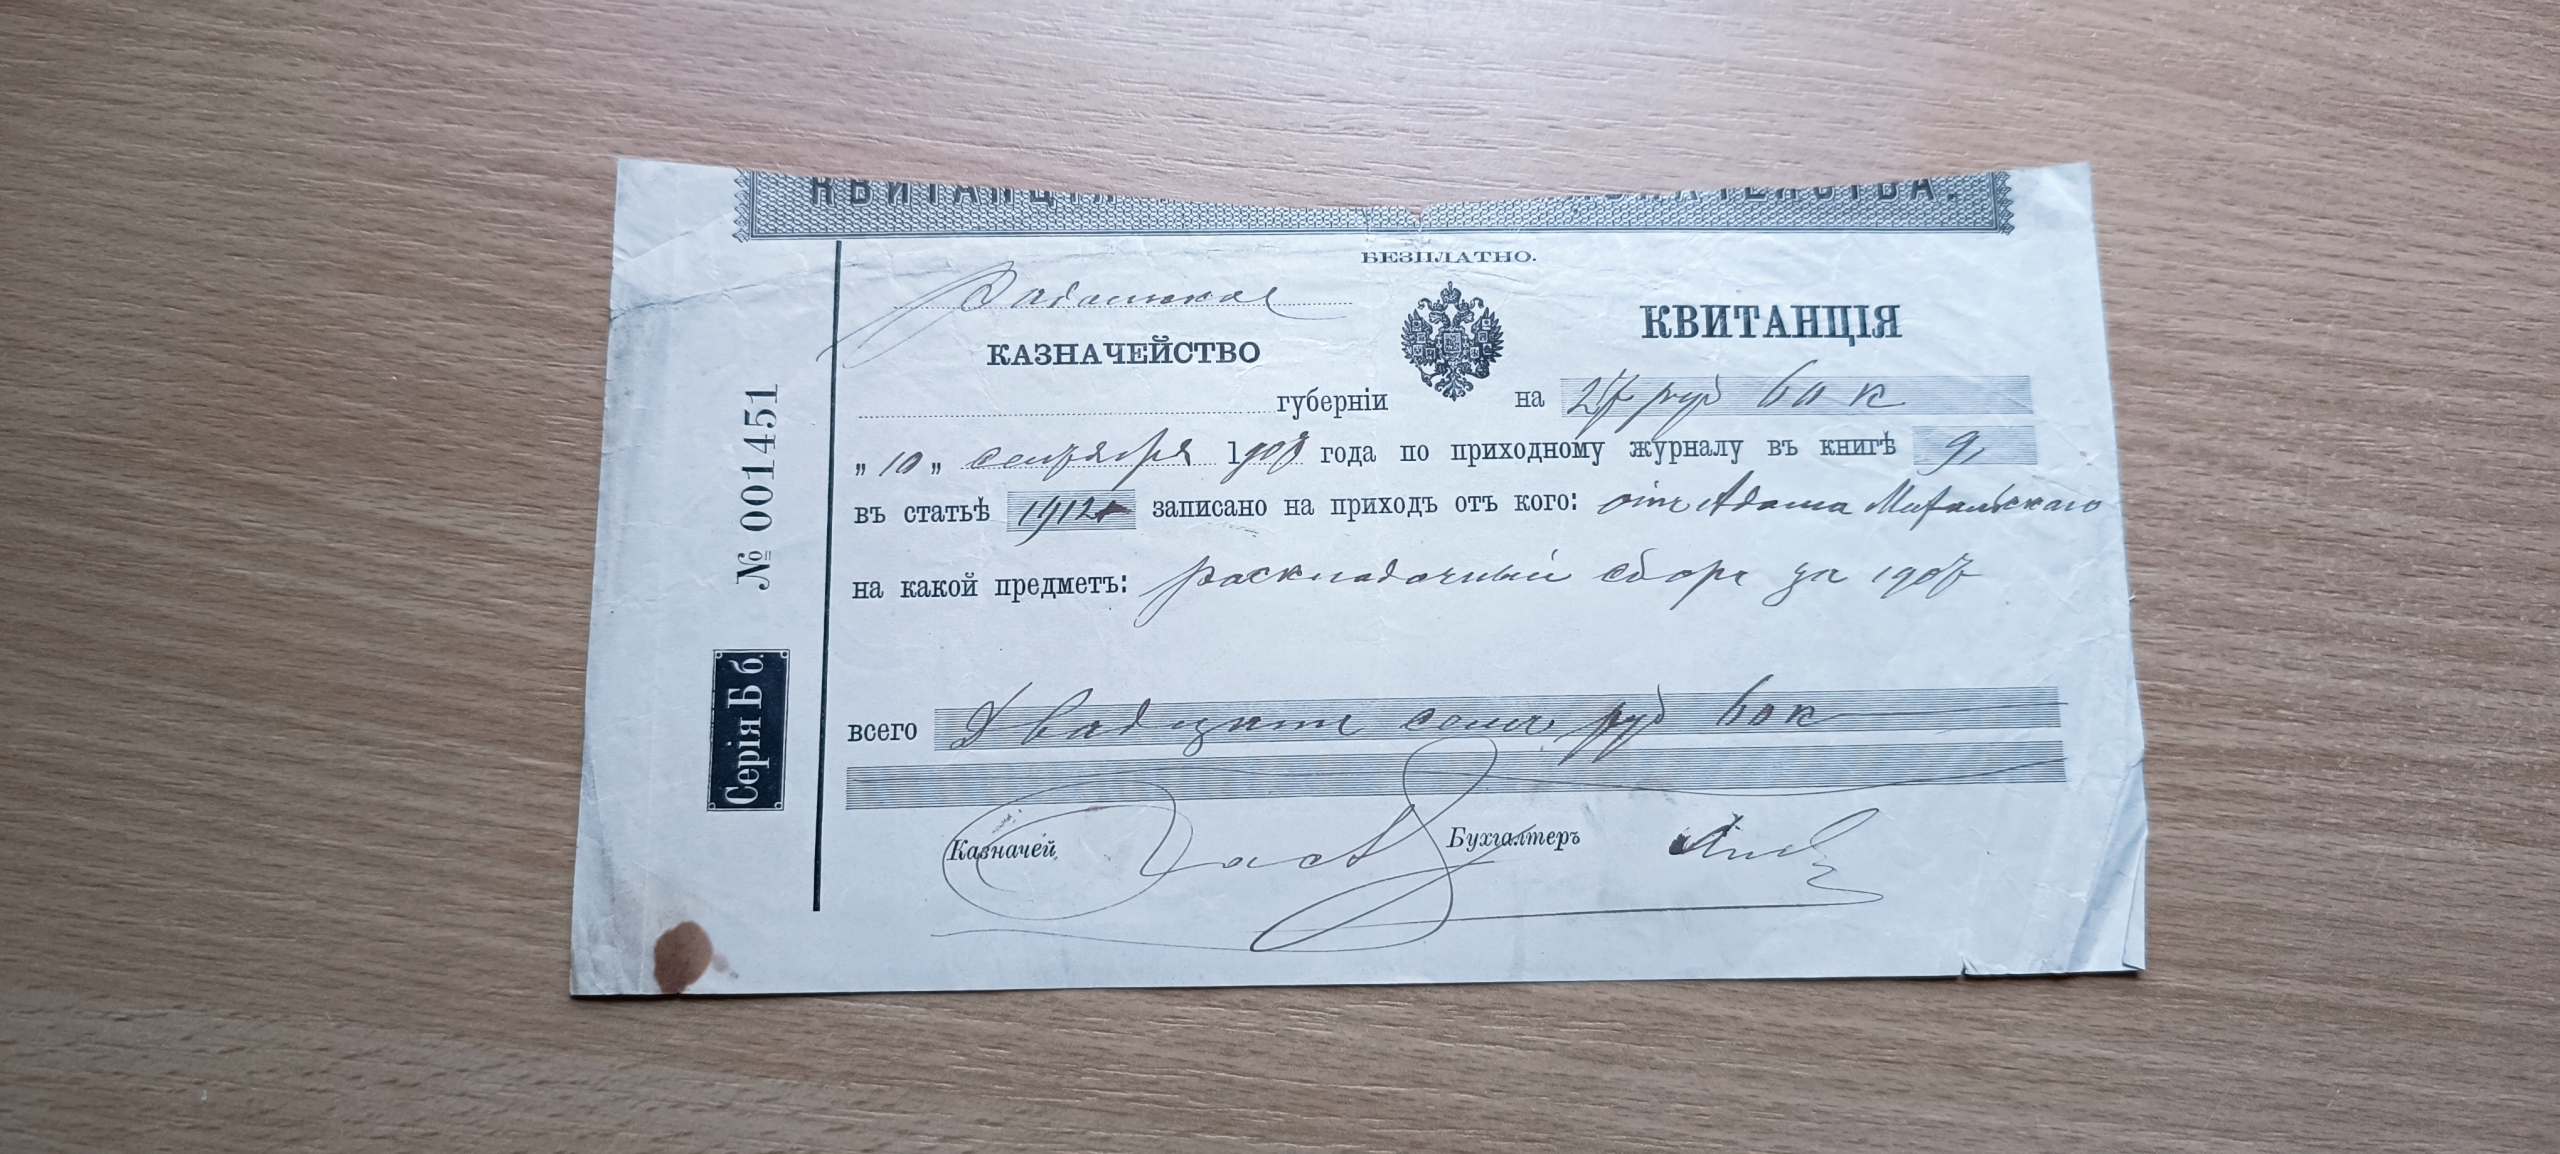 КВИТАНЦІЯ
БЕЗПЛАТНО.
КАЗНАЧЕЙСТВО
КВИТАНЦІЯ
губерніи на 27 руб 60 к
„ 10 „ сентября 1907 года по приходному журналу въ книгѣ 9
въ статьѣ 1912 записано на приходъ отъ кого: отъ Адама
на какой предметъ: раскладочный сборъ за 1907
всего Двадцать семь руб 60 к
Казначей
Бухгалтеръ
№ 001451
Серія Б б.